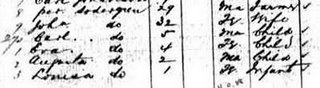 8 Per Sodergren 29 Ma Farmer
9 Joha do 32 F Wife
270 Carl do 5 Ma Child
1 Eva do 4 F Child
2 Augusta do 2 Ma Child
3 Lovisa do 1 F Infant